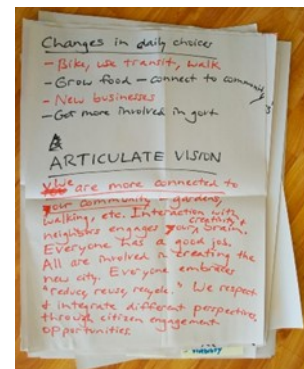 Changes in daily choices
- Bike, use transit, walk
- Grow food - connect to community
- New businesses
- Get more involved in govt
&
ARTICULATE VISION
We are more connected to
our community - gardens,
walking, etc. Interaction with
creativity &
neighbors engages our brain.
Everyone has a good job.
All are involved in creating the
new city. Everyone embraces
"reduce, reuse, recycle." We respect
& integrate different perspectives
through citizen engagement
opportunities.